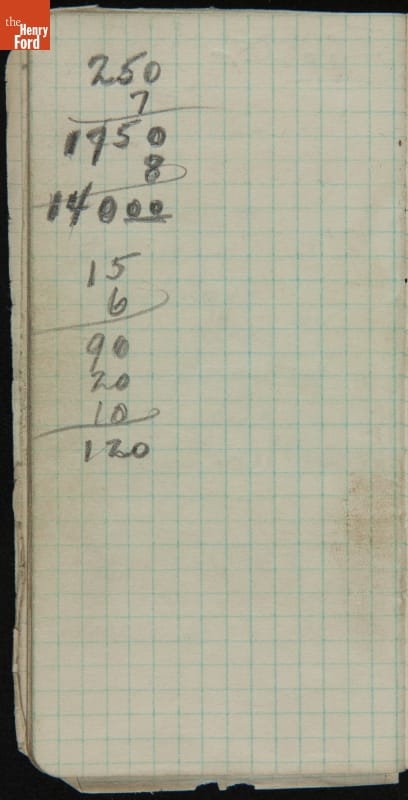 the
Henry
Ford
250
7
1750
8
14000
15
6
90
20
10
120